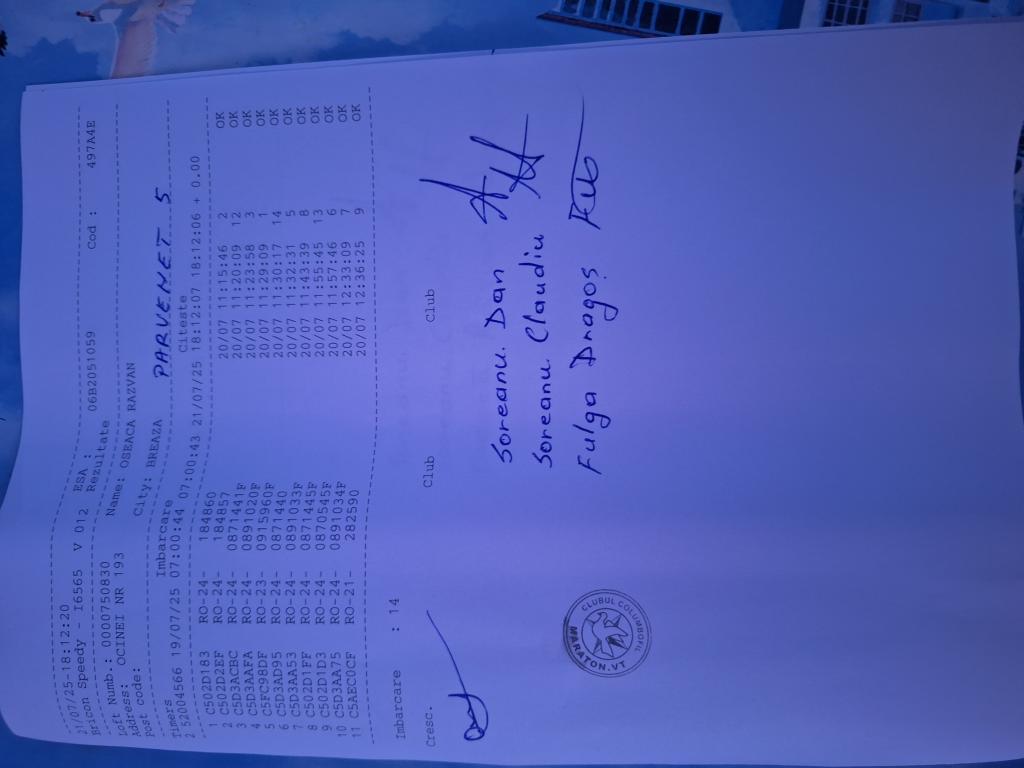 21/07/25-18:12:20
Bricon Speedy - I6565 V 012 ESA : 06B2051059 Cod : 497A4E
Rezultate
Loft Numb.: 0000750830 Name: OSEACA RAZVAN
Address: OCINEI NR 193
Post code: City: BREAZA
PARVENET 5
Imbarcare Citeste
Timers
2 52004566 19/07/25 07:00:44 07:00:43 21/07/25 18:12:07 18:12:06 + 0.00
1 C502D183 RO-24- 184860 20/07 11:15:46 2 OK
2 C502D2EF RO-24- 184857 20/07 11:20:09 12 OK
3 C5D3ACBC RO-24- 0871441F 20/07 11:23:58 3 OK
4 C5D3AAFA RO-24- 0891020F 20/07 11:29:09 1 OK
5 C5FC98DF RO-23- 0915960F 20/07 11:30:17 14 OK
6 C5D3AD95 RO-24- 0871440 20/07 11:32:31 5 OK
7 C5D3AA53 RO-24- 0891033F 20/07 11:43:39 8 OK
8 C502D1FF RO-24- 0871445F 20/07 11:55:45 13 OK
9 C502D1D3 RO-24- 0870545F 20/07 11:57:46 6 OK
10 C5D3AA75 RO-24- 0891034F 20/07 12:33:09 7 OK
11 C5AEC0CF RO-21- 282590 20/07 12:36:25 9 OK
Imbarcare : 14
Cresc. Club Club
Soreanu Dan
Soreanu Claudiu
Fulga Dragos
CLUBUL COLUMBOFIL
MARATON.VT